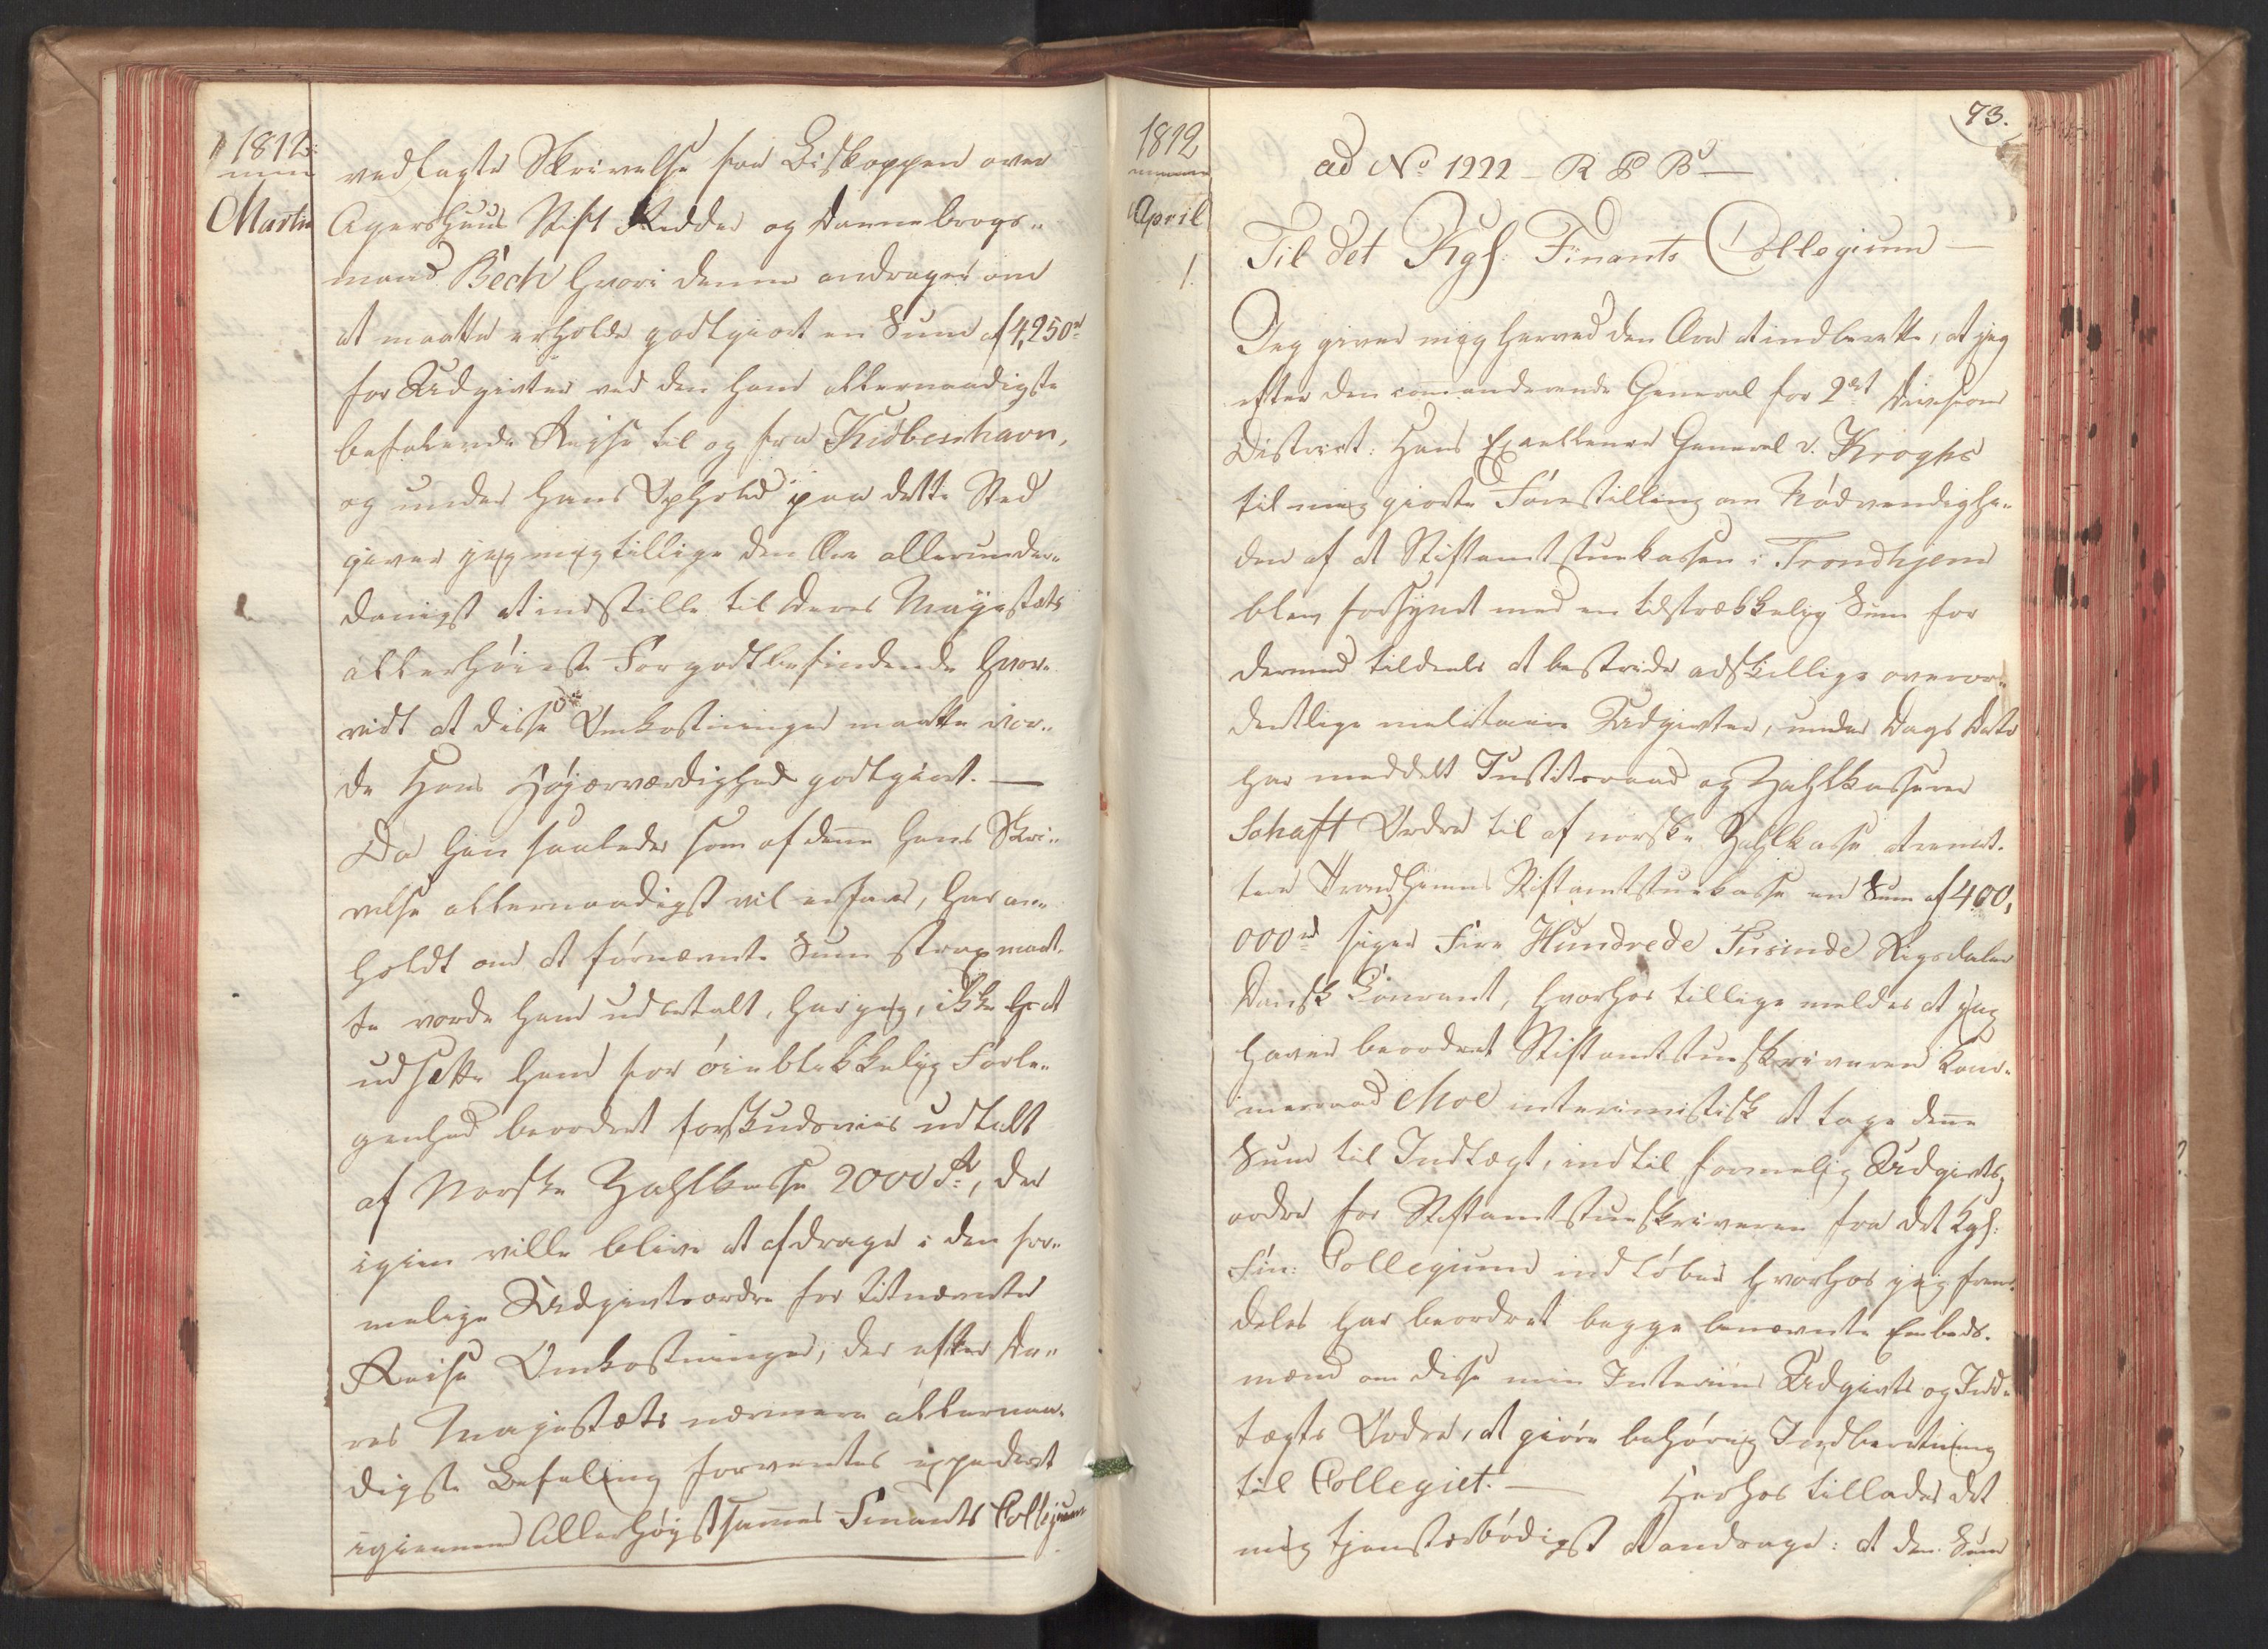 1812.
Martii
vedlagte Skrivelse fra Biskoppen over
Agershuus Stift Ridder og Dannebrogs-
mand Bech hvori denne andrager om
at maatte erholde godtgiort en Sum af 4,250 rd
for Udgivter ved den ham allernaadigste
befalende Reise til og fra Kiøbenhavn,
og under hans Ophold paa dette Sted
giver jeg mig tillige den Ære allerunder-
danigst at indstille til Deres Mayestæts
allerhøieste Forgodtbefindende hvor-
vidt at disse Omkostninger maatte vor-
de Hans Høyærværdighed godtgiort. —
Da han saaledes som af denne hans Skri-
velse allernaadigst vil erfares, har an-
holdt om at førnævnte Sum strax maat-
te vorde ham udbetalt, har jeg, ikke at
udsætte ham for øieblikkelig Forle-
genhed beordret forskudsviis udtalt
af Norske Zahlkasse 2000 rd, der
igien ville blive at afdrage i den for-
melige Udgivtsordre for bemævnte
Reise Omkostninger, der efter De-
res Majestæts nærmere allernaa-
digste Befaling forventes expederet
igiennem Allerhøystsammes Finants Collegium
73.
1812
April
1.
ad No 1222 — R & B —
Til det Kgl: Finants Collegium —
Jeg giver mig herved den Ære at indberette, at jeg
efter den comanderende General for 2det Divisions
District: Hans Excellence General v. Kroghs
til mig giorte Forestilling om Nødvendighe-
den af at Stiftamtstuekassen i Trondhjem
blev forsynet med en tilstrækkelig Sum for
dermed tildeels at bestride adskillige overor-
dentlige militaire Udgivter, under Dags Dato
har meddelt Justitsraad og Zahlkasserer
Schafft Ordre til af norske Zahlkasse at remit-
tere Trondhjems Stiftamtstuekasse en Sum af 400,
000 rd siger Fire Hundrede Tusinde Rigsdaler
Dansk Courant, hvorhos tillige meldes at jeg
haver beordret Stiftamtstueskriveren Cam-
merraad Moe interimistisk at tage denne
Sum til Indtægt, indtil formelig Udgivts-
ordre for Stiftamtstueskriveren fra det Kgl:
Fin: Collegium indløber hvorhos jeg frem-
deles har beordret begge benævnte Embeds-
mænd om disse min Interims Udgivts og Ind-
tægts Ordre, at giøre behørig Indberetning
til Collegiet. — Herhos tillades det
mig tjenstærbødigst at andrage: at den Sum